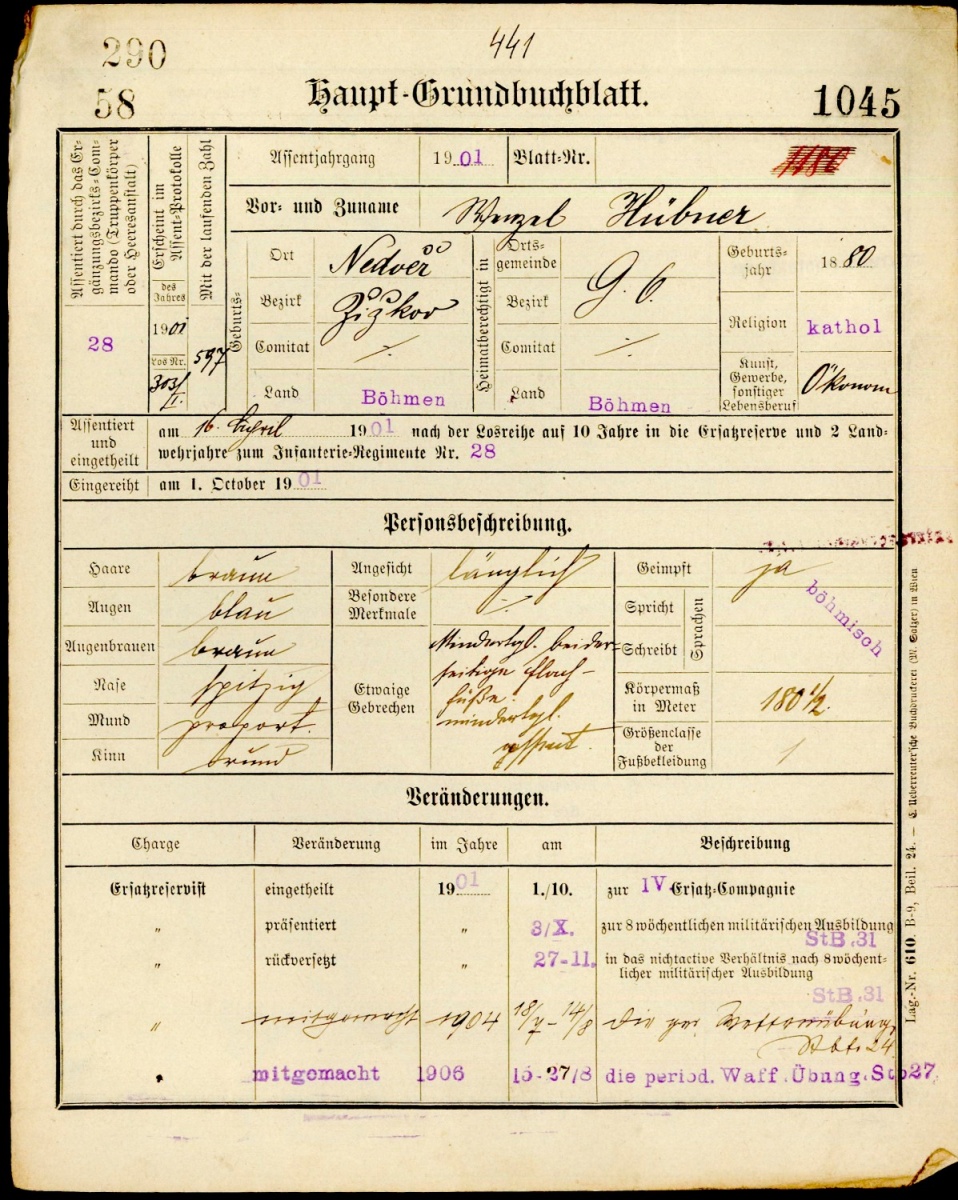 290
441
58
Haupt-Grundbuchblatt.
1045
Assentiert durch das Ergänzungsbezirks-Commando (Truppenkörper oder Heeresanstalt)
28
Erscheint im Assent-Protokolle
des Jahres
1901
Los Nr.
303/I.
Mit der laufenden Zahl
597
Assentjahrgang 1901 Blatt-Nr.
Vor- und Zuname Wenzel Hübner
Geburts-
Ort
Bezirk Žižkov
Comitat ./.
Land Böhmen
Heimatberechtigt in
Ortsgemeinde
Bezirk
Comitat ./.
Land Böhmen
Geburtsjahr 1880
Religion kathol
Kunst, Gewerbe, sonstiger Lebensberuf Ökonom
Assentiert und eingetheilt
am 16. April 1901 nach der Losreihe auf 10 Jahre in die Ersatzreserve und 2 Land-
wehrjahre zum Infanterie-Regimente Nr. 28
Eingereiht am 1. October 1901
Personsbeschreibung.
Haare braun
Augen blau
Augenbrauen braun
Nase spitzig
Mund proport.
Kinn rund
Angesicht länglich
Besondere Merkmale ./.
Etwaige Gebrechen
Mindertgl. beider-
seitige Flach-
füße
mindertgl.
Geimpft ja
Spricht
Schreibt
Sprachen
böhmisch
Körpermaß in Meter 180 1/2.
Größenclasse der Fußbekleidung 1
Veränderungen.
Charge Veränderung im Jahre am Beschreibung
Ersatzreservist eingetheilt 1901 1./10. zur IV Ersatz-Compagnie
" präsentiert " 3/X. zur 8 wöchentlichen militärischen Ausbildung
StB.31
" rückversetzt " 27-11. in das nichtactive Verhältnis nach 8 wöchent-
licher militärischer Ausbildung
StB.31
" mitgemacht 1904 18/7 - 14/8 die per. Waffenübung
Stbt. 24
" mitgemacht 1906 15-27/8 die period. Waff.Übung.Stb27
Lag.-Nr. 610. B-9, Beil. 24. — C. Ueberreuter'sche Buchdruckerei (M. Salzer) in Wien